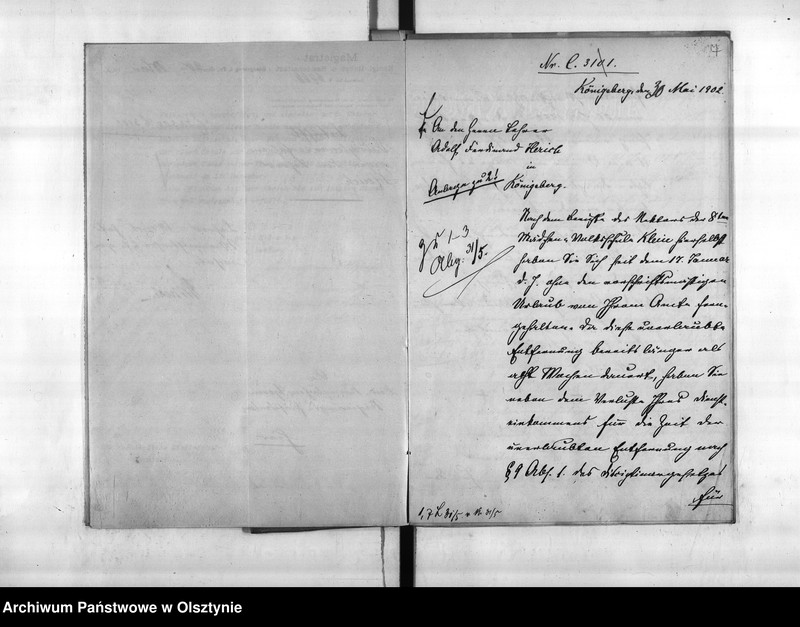 Nr. C. 3101.
Königsberg, den 30 Mai 1902
An den Herrn Lehrer
Adolf Ferdinand Herich
in
Königsberg.
zu 1-3
Abg. 31/5.
Nach dem Berichte des Rektors der 8ten
Mädchen-Volksschule Klein hierselbst
haben Sie Sich seit dem 17. Januar
d. J. ohne den vorschriftsmäßigen
Urlaub von Ihrem Amte fern-
gehalten. Da diese unerlaubte
Entfernung bereits länger als
acht Wochen dauert, haben Sie
neben dem Verluste Ihres Dienst-
einkommens für die Zeit der
unerlaubten Entfernung nach
§ 9 Abs. 1. des Disziplinargesetzes
für
Archiwum Państwowe w Olsztynie